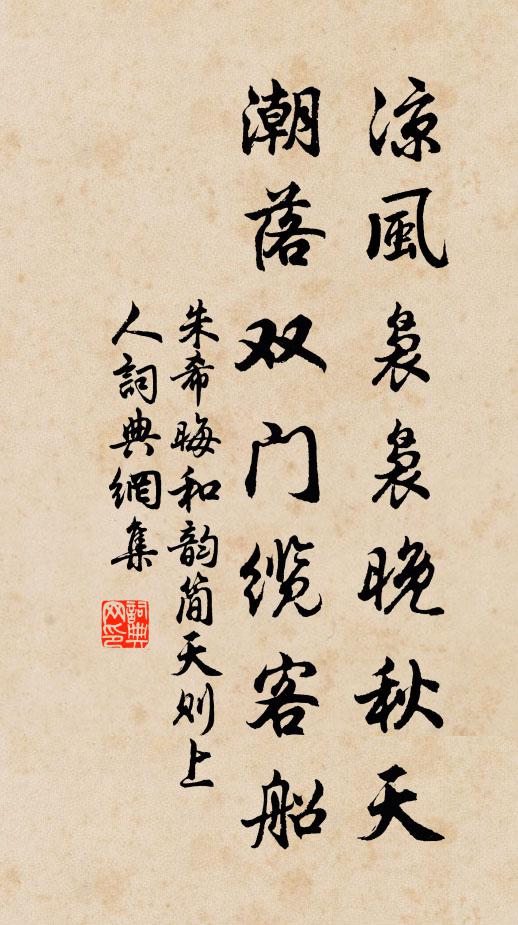 凉風袅袅晚秋天
潮落双门缆客船
朱希晦和韵简天则上
人詞典網集
詞典
网印